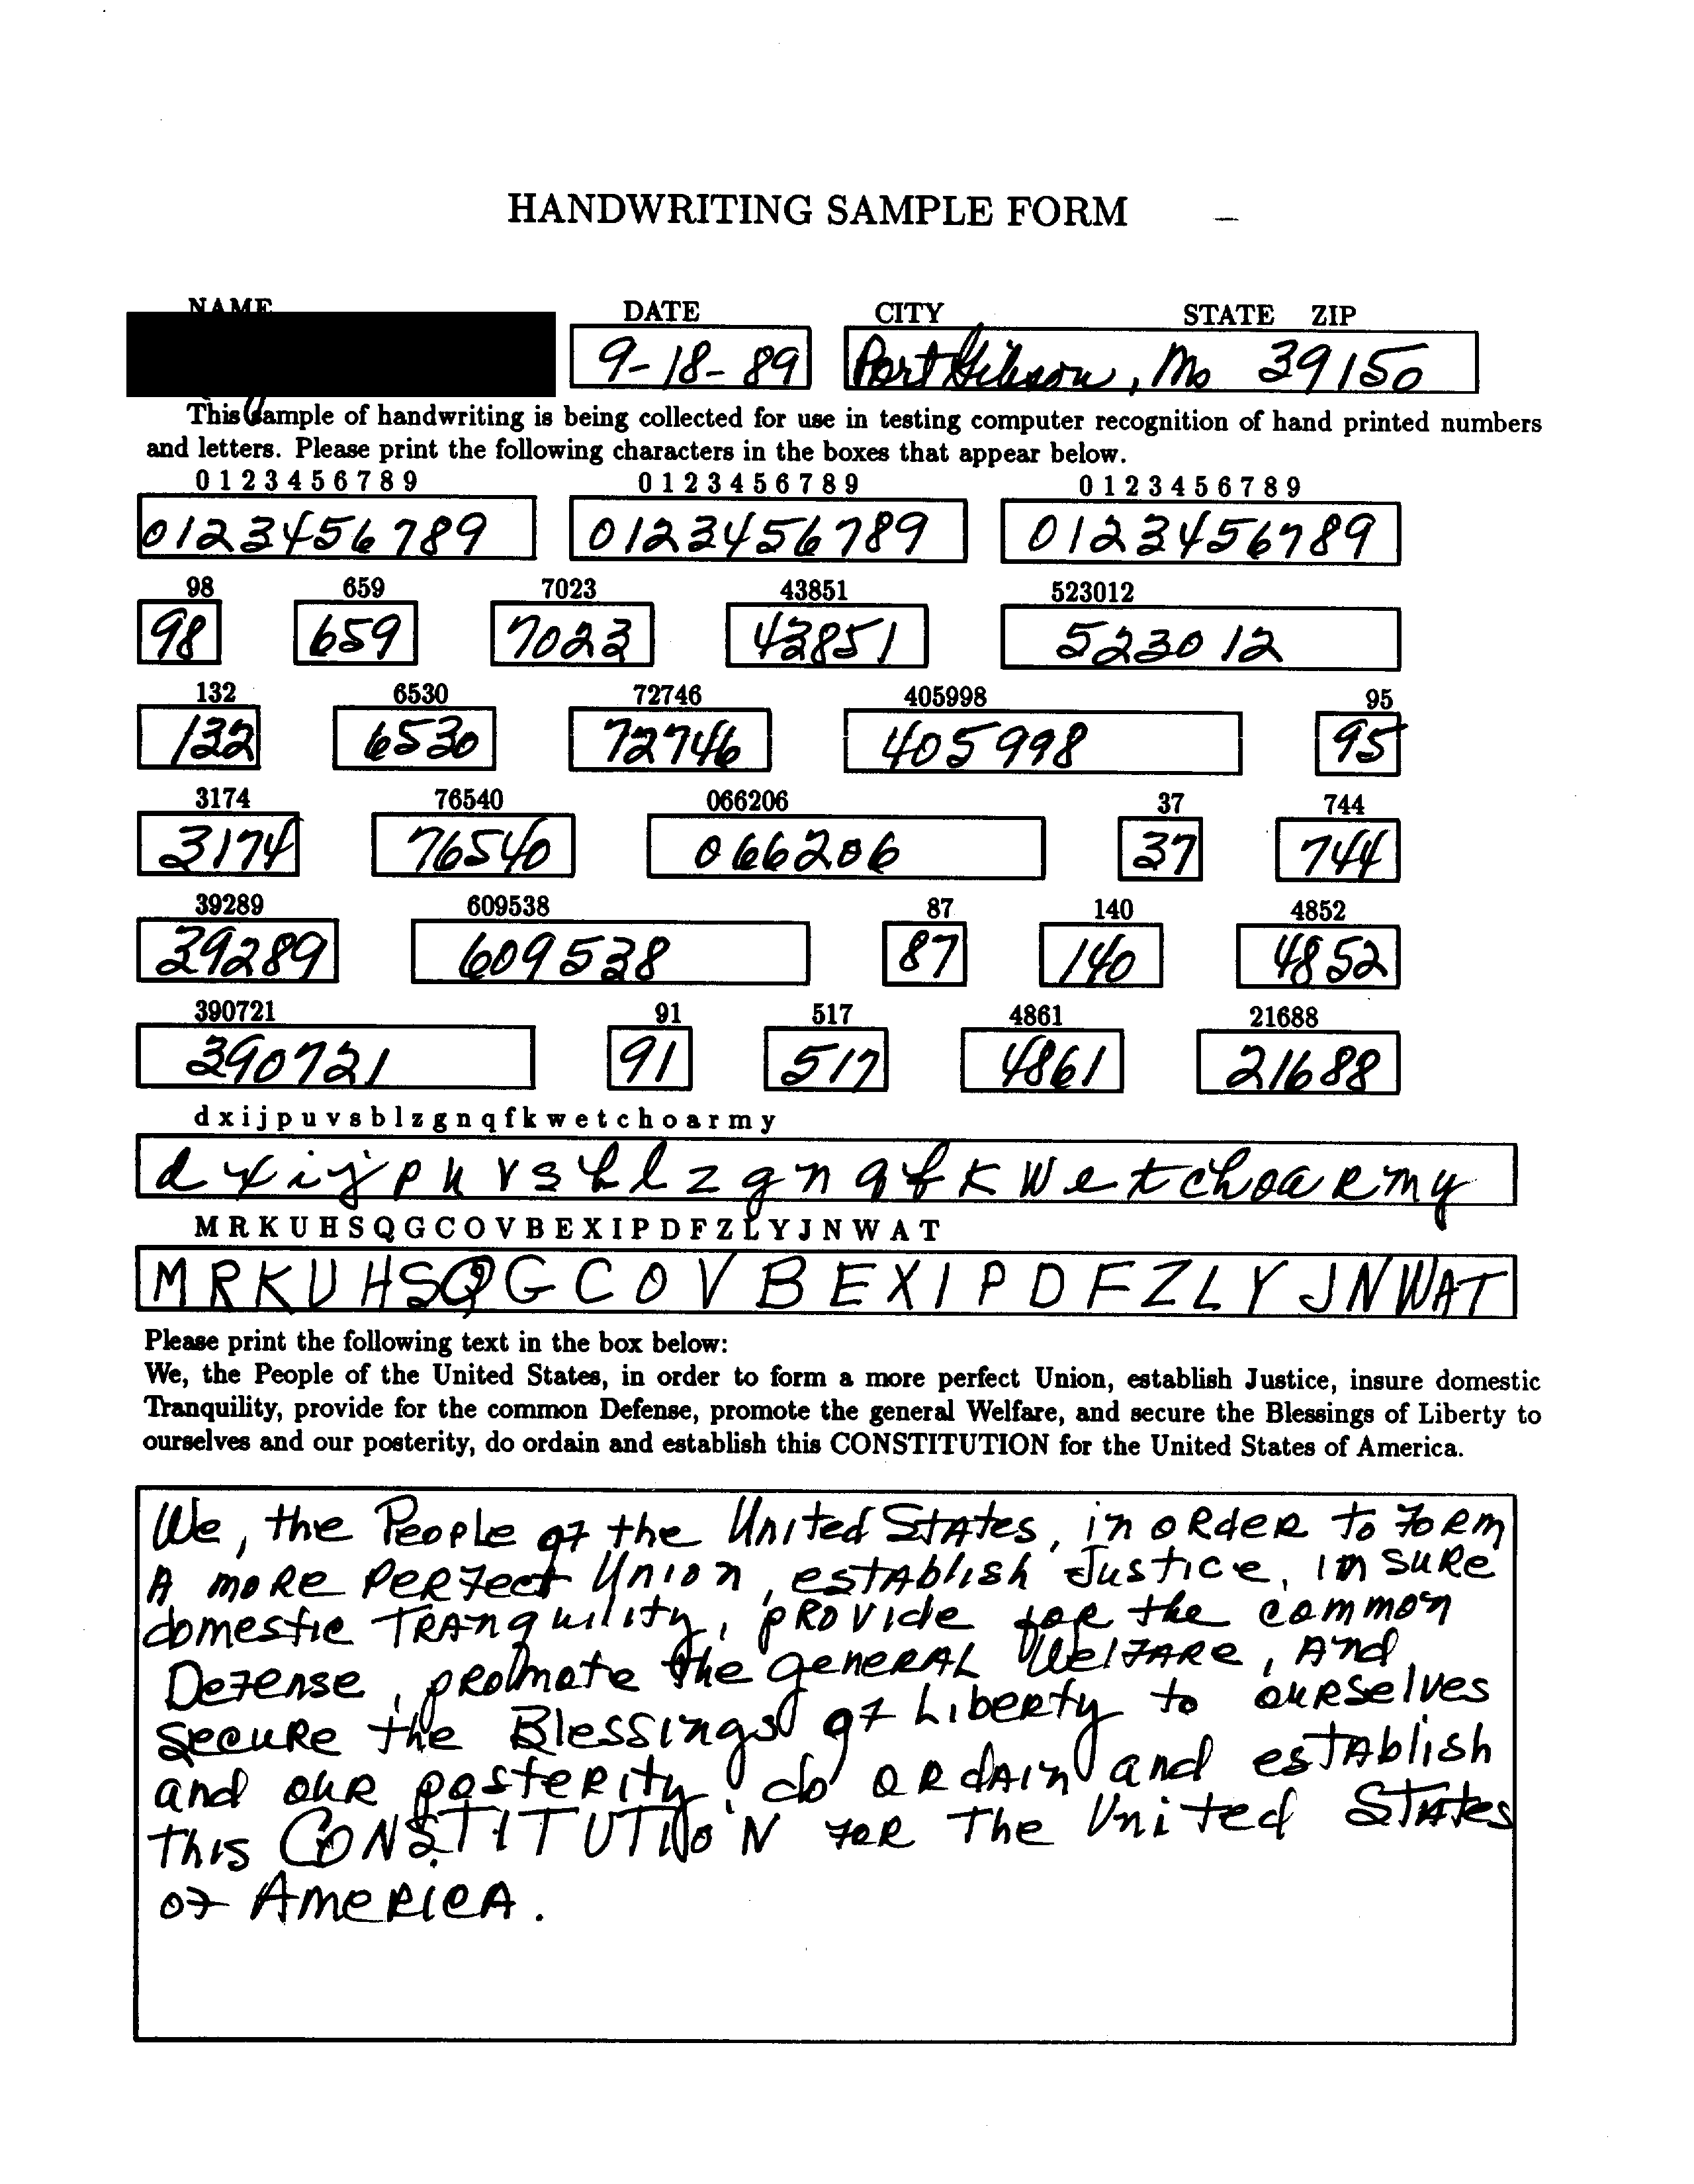 HANDWRITING SAMPLE FORM
NAME DATE CITY STATE ZIP
9-18-89 Port Gibson, Ms 39150
This sample of handwriting is being collected for use in testing computer recognition of hand printed numbers
and letters. Please print the following characters in the boxes that appear below.
0 1 2 3 4 5 6 7 8 9 0 1 2 3 4 5 6 7 8 9 0 1 2 3 4 5 6 7 8 9
0123456789 0123456789 0123456789
98 659 7023 43851 523012
98 659 7023 43851 523012
132 6530 72746 405998 95
132 6530 72746 405998 95
3174 76540 066206 37 744
3174 76540 066206 37 744
39289 609538 87 140 4852
39289 609538 87 140 4852
390721 91 517 4861 21688
390721 91 517 4861 21688
d x i j p u v s b l z g n q f k w e t c h o a r m y
d x i j p u v s b l z g n q f k w e t c h o a r m y
M R K U H S Q G C O V B E X I P D F Z L Y J N W A T
M R K U H S Q G C O V B E X I P D F Z L Y J N W A T
Please print the following text in the box below:
We, the People of the United States, in order to form a more perfect Union, establish Justice, insure domestic
Tranquility, provide for the common Defense, promote the general Welfare, and secure the Blessings of Liberty to
ourselves and our posterity, do ordain and establish this CONSTITUTION for the United States of America.
We, the People of the United States, in order to form
A more Perfect Union, establish Justice, insure
domestic Tranquility, provide for the common
Defense, promote the general Welfare, And
Secure the Blessings of Liberty to ourselves
and our posterity, do ordain and establish
this CONSTITUTION for The United States
of America.